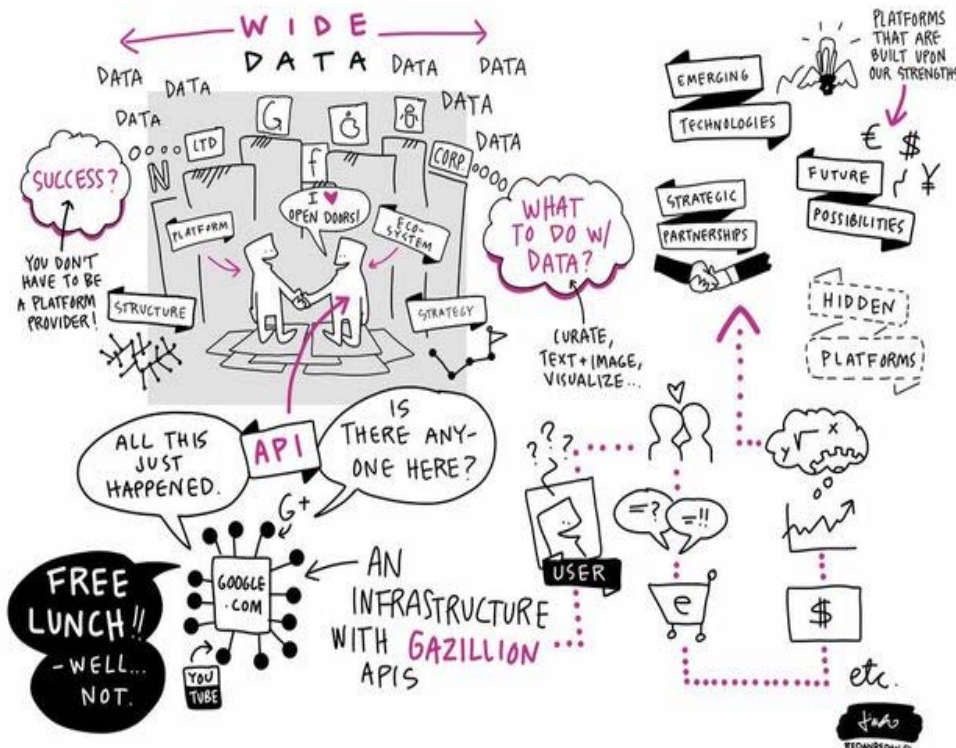 WIDE
DATA
DATA
DATA
DATA
DATA
DATA
DATA
DATA
LTD
G
f
CORP.
N
SUCCESS?
YOU DON'T
HAVE TO BE
A PLATFORM
PROVIDER!
PLATFORM
I
OPEN DOORS!
ECO-
SYSTEM
STRUCTURE
STRATEGY
WHAT
TO DO W/
DATA?
CURATE,
TEXT + IMAGE,
VISUALIZE...
EMERGING
TECHNOLOGIES
PLATFORMS
THAT ARE
BUILT UPON
OUR STRENGTHS
€ $
¥
FUTURE
POSSIBILITIES
STRATEGIC
PARTNERSHIPS
HIDDEN
PLATFORMS
ALL THIS
JUST
HAPPENED.
API
IS
THERE ANY-
ONE HERE?
G+
GOOGLE
.COM
YOU
TUBE
FREE
LUNCH!!
- WELL...
NOT.
AN
INFRASTRUCTURE
WITH GAZILLION
APIS
???
?
USER
=?
=!!
e
√ x
y
$
etc.